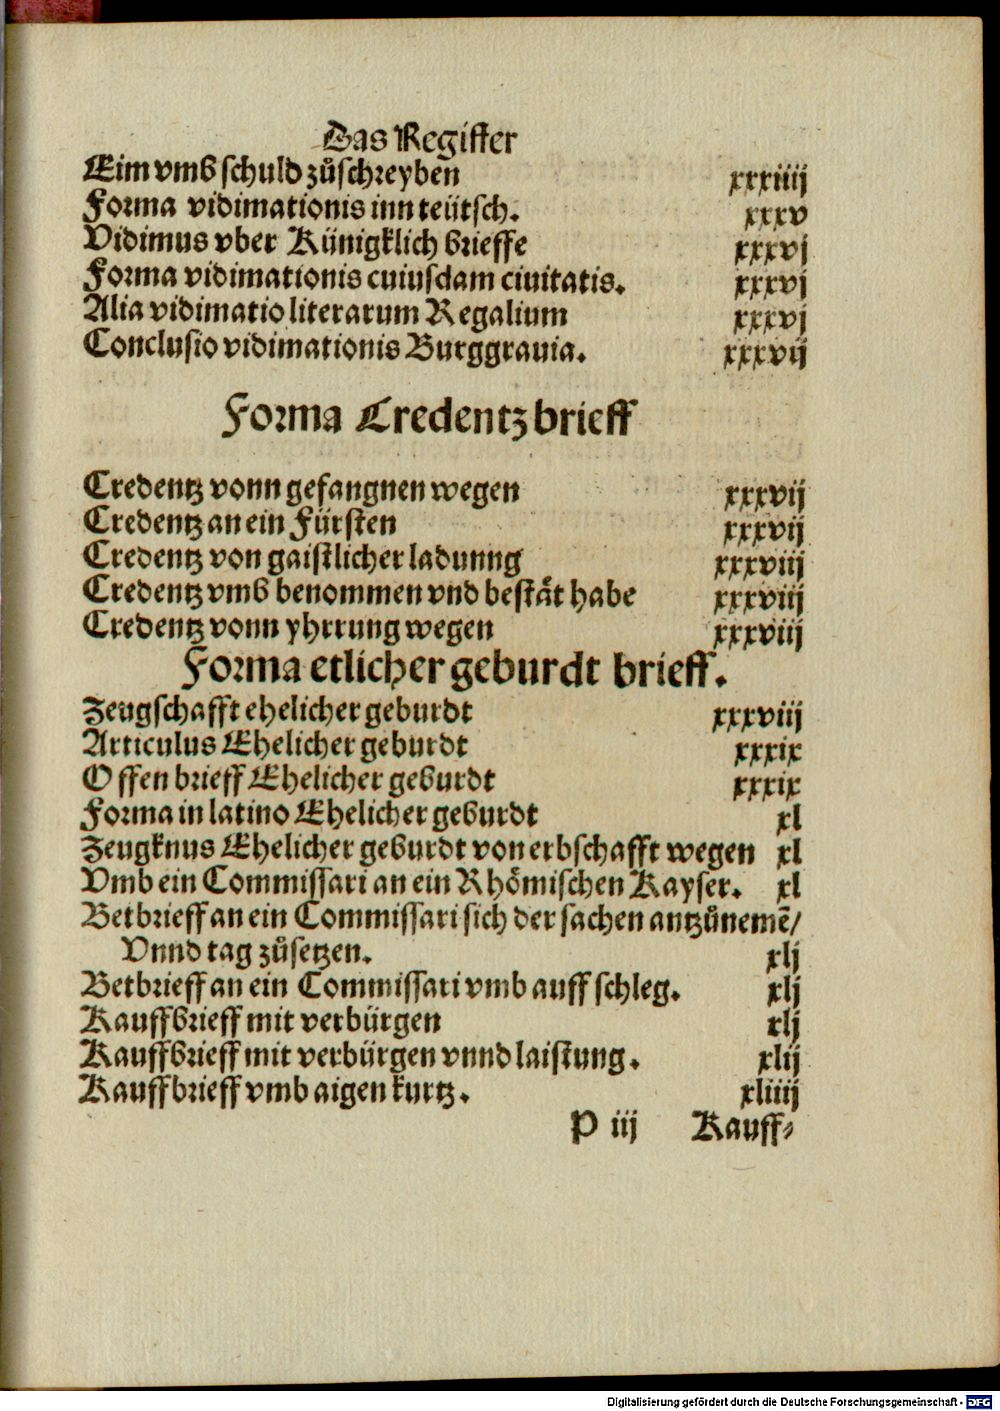 Das Register
Eim vmb schuld zůschreyben xxxiiij
Forma vidimationis inn teütsch. xxxv
Vidimus vber Künigklich brieffe xxxvj
Forma vidimationis cuiusdam ciuitatis. xxxvj
Alia vidimatio literarum Regalium xxxvj
Conclusio vidimationis Burggrauia. xxxvij
Forma Credentz brieff
Credentz vonn gefangnen wegen xxxvij
Credentz an ein Fürsten xxxvij
Credentz von gaistlicher ladunng xxxviij
Credentz vmb benommen vnd beståt habe xxxviij
Credentz vonn yhrrung wegen xxxviij
Forma etlicher geburdt brieff.
Zeugschafft ehelicher geburdt xxxviij
Articulus Ehelicher geburdt xxxix
Offen brieff Ehelicher geburdt xxxix
Forma in latino Ehelicher geburdt xl
Zeugknus Ehelicher geburdt von erbschafft wegen xl
Vmb ein Commissari an ein Rhömischen Kayser. xl
Betbrieff an ein Commissari sich der sachen antzůnemẽ/
Vnnd tag zůsetzen. xlj
Betbrieff an ein Commissari vmb auff schleg. xlj
Kauffbrieff mit verbürgen xlj
Kauffbrieff mit verbürgen vnnd laistung. xlij
Kauffbrieff vmb aigen kurtz. xliiij
P iij Kauff⸗
Digitalisierung gefördert durch die Deutsche Forschungsgemeinschaft - DFG